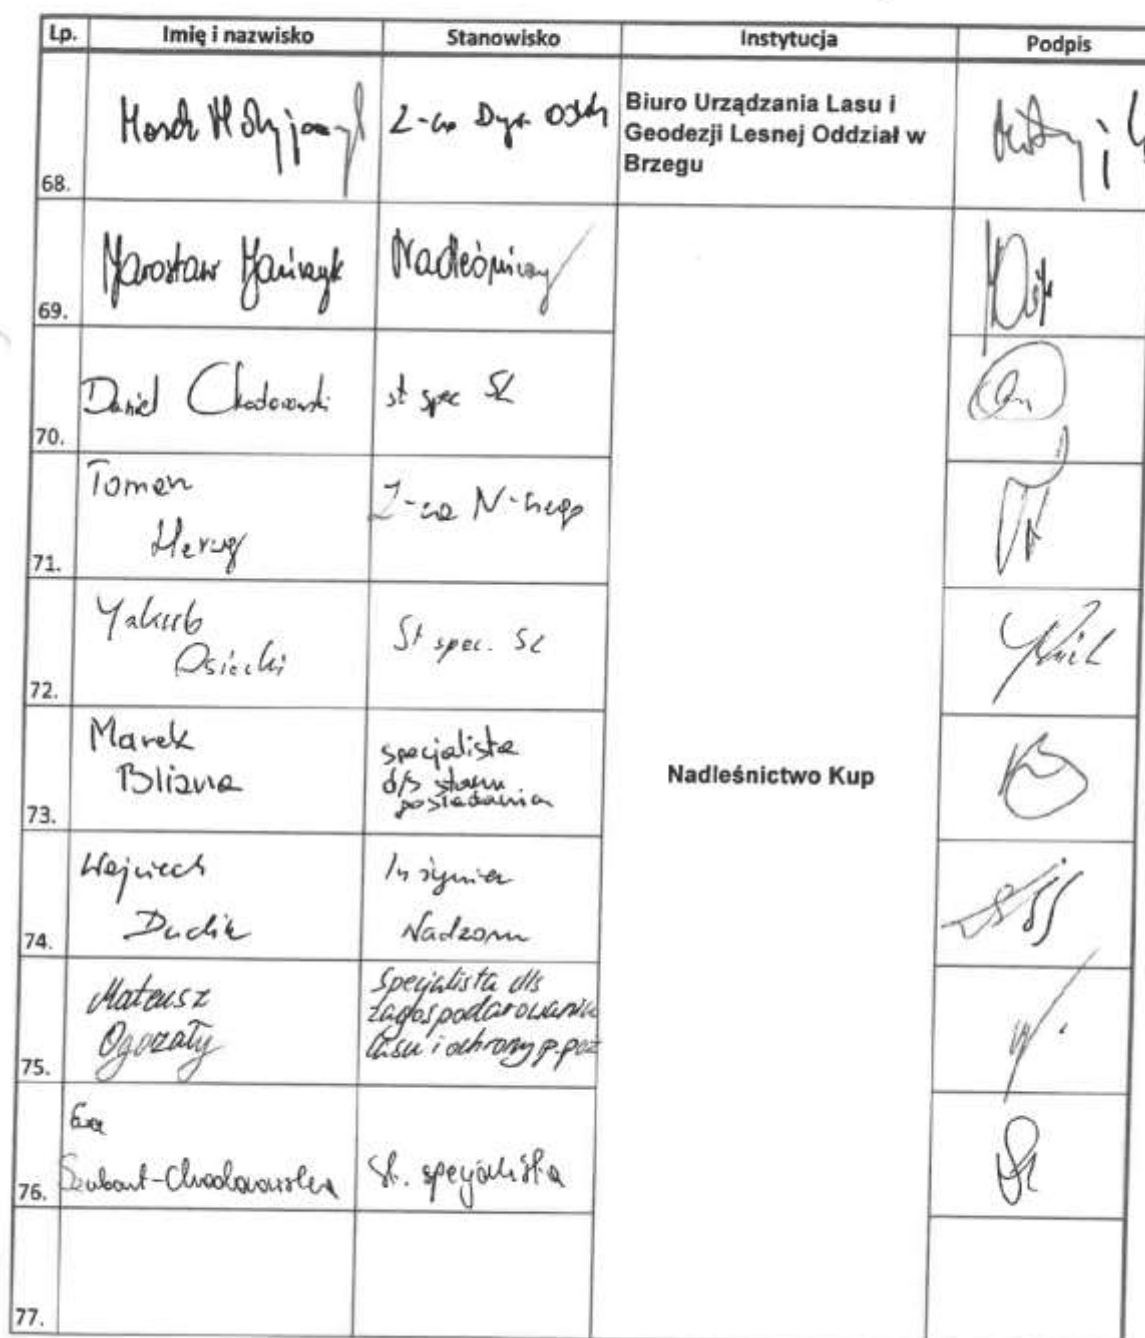 Lp. Imię i nazwisko Stanowisko Instytucja Podpis
68. Z-ca Dyr. Biuro Urządzania Lasu i
Geodezji Lesnej Oddział w
Brzegu
69. Jarosław Nadleśniczy
70. Daniel Chodorowski st spec SL
71. Tomasz
Herzog
Z-ca N-czego
72. Jakub
Osiecki
St spec. SL
73. Marek
Bliźnia
specjalista
d/s stanu
posiadania
Nadleśnictwo Kup
74. Wojciech
Dudik
Inżynier
Nadzoru
75. Mateusz
Ogozały
Specjalista d/s
zagospodarowania
lasu i ochrony p.poż
76. Ewa
St. specjalista
77.